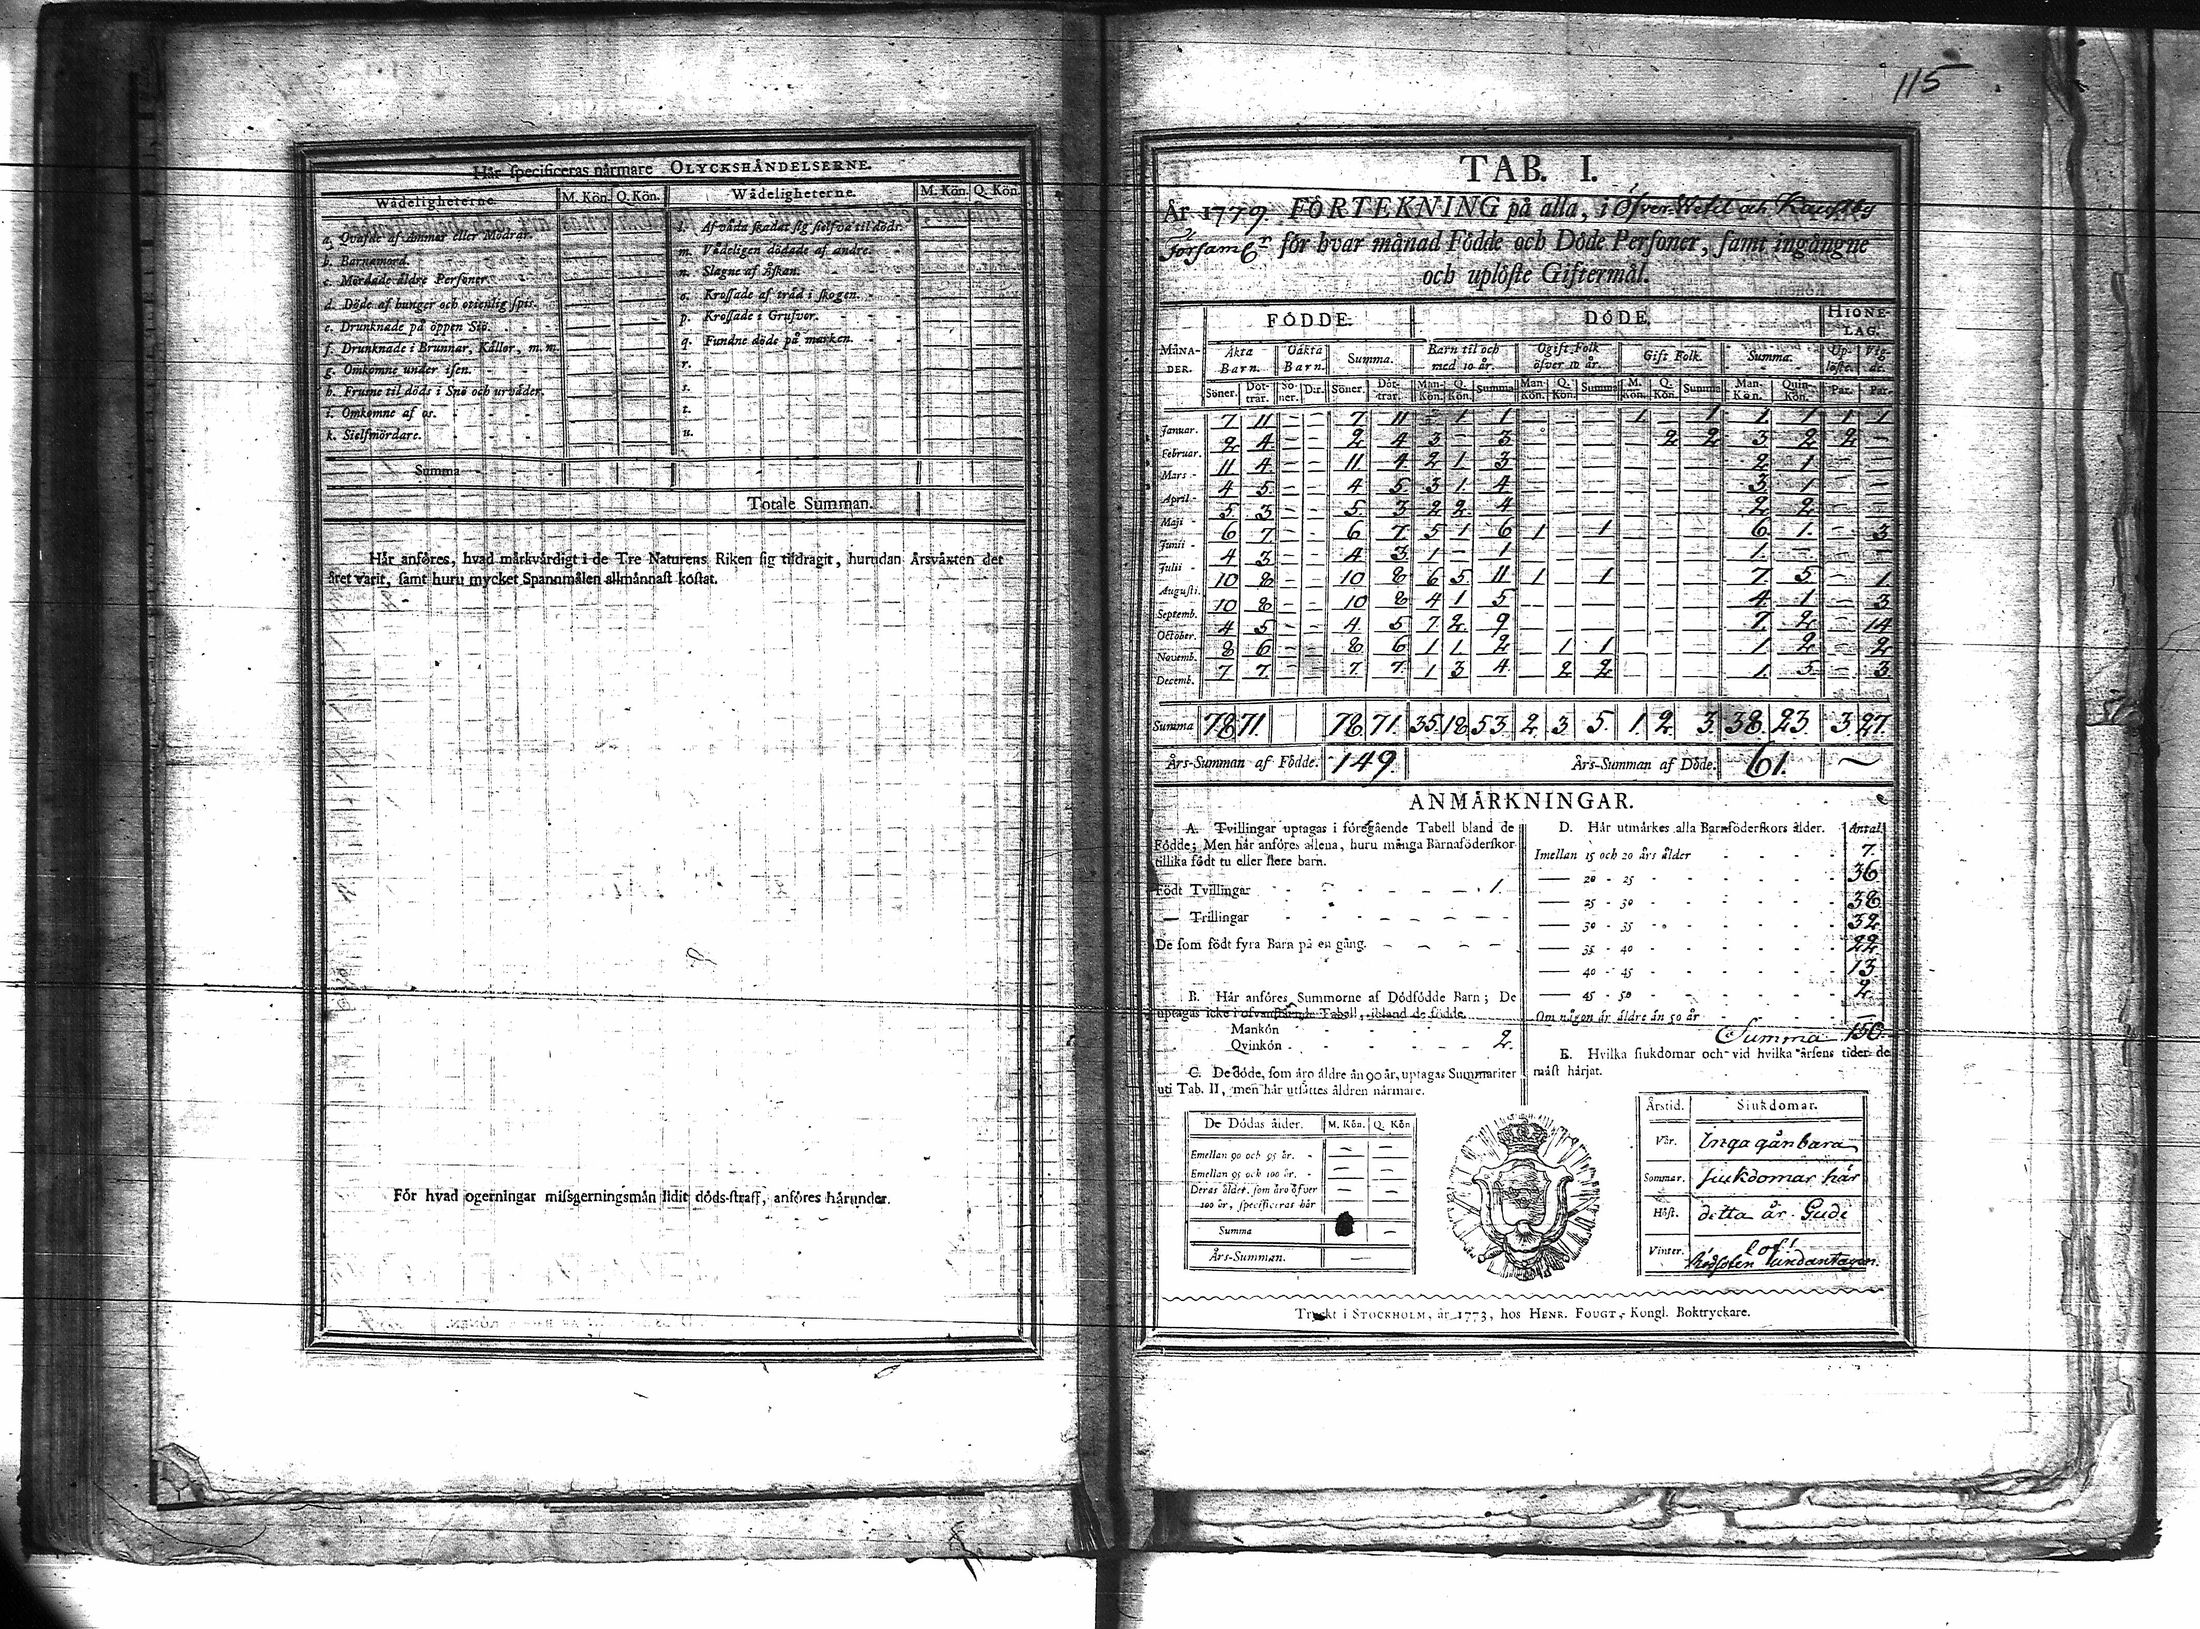 115
Här specificeras närmare OLYCKSHÄNDELSERNE.
Wådeligheterne. M. Kön. Q. Kön. Wådeligheterne. M. Kön. Q. Kön.
a. Qväfde af Ammor eller Mödrar.
b. Barnamord.
c. Mördade äldre Personer.
d. Döde af hunger och otienlig spis.
e. Drunknade på öppen Siö.
f. Drunknade i Brunnar, Källor, m.m.
g. Omkomne under isen.
h. Frusne til döds i Snö och urväder.
i. Omkomne af os.
k. Sielfmördare.
l. Af våda skadat sig sielfva til döds.
m. Vådeligen dödade af andre.
n. Slagne af Åskan.
o. Krossade af träd i skogen.
p. Krossade i Grufvor.
q. Fundne döde på marken.
r.
s.
t.
u.
Summa
Totale Summan.
Här anföres, hvad märkvärdigt i de Tre Naturens Riken sig tildragit, hurudan Årsväxten det
året varit, samt huru mycket Spannmålen allmännast kostat.
För hvad ogerningar missgerningsmän lidit döds-straff, anföres härunder.
TAB. I.
År 1779. FÖRTEKNING på alla, i Öfver Wetil och
Församl:r för hvar månad Födde och Döde Personer, samt ingångne
och uplöste Giftermål.
FÖDDE. DÖDE. HIONE-LAG.
MÅNA-DER. Äkta Barn. Oäkta Barn. Summa. Barn til och med 10 år. Ogift Folk öfver 10 år. Gift Folk. Summa. Up-löste. Vig-de.
Söner. Döt-trar. Sö-ner. Dtr. Söner. Döt-trar. Man-Kön. Q. Kön. Summa Man-Kön. Q. Kön. Summa M. Kön. Q. Kön. Summa Man-Kön. Quin-Kön. Par. Par.
Januar. 7 11 - - 7 11 - 1 1 - - - 1 - 1 1 1 1 1
Februar. 2 4 - - 2 4 3 - 3 - - - - 2 2 3 2 2 -
Mars - 11 4 - - 11 4 2 1 3 - - - - - - 2 1 - -
April - 4 5 - - 4 5 3 1 4 - - - - - - 3 1 - -
Maji - 5 3 - - 5 3 2 2 4 - - - - - - 2 2 - -
Junii - 6 7 - - 6 7 5 1 6 1 - 1 - - - 6 1 - 3
Julii - 4 3 - - 4 3 1 - 1 - - - - - - 1 - - -
Augusti. 10 8 - - 10 8 6 5 11 1 - 1 - - - 7 5 - 1
Septemb. 10 8 - - 10 8 4 1 5 - - - - - - 4 1 - 3
October. 4 5 - - 4 5 7 2 9 - - - - - - 7 2 - 14
Novemb. 8 6 - - 8 6 1 1 2 - 1 1 - - - 1 2 - 2
Decemb. 7 7 - - 7 7 1 3 4 - 2 2 - - - 1 5 - 3
Summa 78 71 78 71 35 18 53 2 3 5 1 2 3 38 23 3 27
Års-Summan af Födde. 149. Års-Summan af Döde. 61.
ANMÄRKNINGAR.
A. Tvillingar uptagas i föregående Tabell bland de
Födde; Men här anföres allena, huru många Barnaföderskor
tillika födt tu eller flere barn.
Födt Tvillingar 1.
— Trillingar
De som födt fyra Barn på en gång.
B. Här anföres Summorne af Dödfödde Barn; De
uptagas icke i ofvanstående Tabell, ibland de födde.
Mankön
Qvinkön 2.
C. De döde, som äro äldre än 90 år, uptagas Summariter
uti Tab. II, men här utsättes åldren närmare.
De Dödas ålder. M. Kön. Q. Kön
Emellan 90 och 95 år. - -
Emellan 95 och 100 år. - -
Deras ålder, som äro öfver - -
100 år, specificeras här
Summa -
Års-Summan. —
D. Här utmärkes alla Barnföderskors ålder. Antal
Imellan 15 och 20 års ålder 7.
— 20 - 25 36
— 25 - 30 38
— 30 - 35 32
— 35 - 40 22
— 40 - 45 13
— 45 - 50 2
Om någon är äldre än 50 år —
Summa 150
E. Hvilka siukdomar och vid hvilka årsens tider de
mäst härjat.
Årstid. Siukdomar.
Vår. Inga gånbara
Sommar. siukdomar här
Höst. detta år. Gudi
Vinter. lof!
undantagen.
Tryckt i STOCKHOLM, år 1773, hos HENR. FOUGT, Kongl. Boktryckare.